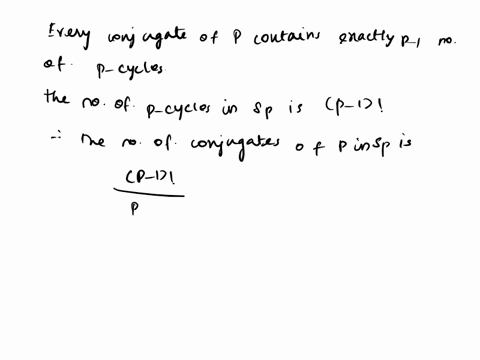 Every conjugate of P contains exactly p-1 no.
of p-cycles
the no. of p-cycles in Sp is (p-1)!
∴ the no. of conjugates of P in Sp is
(P-1)!
P